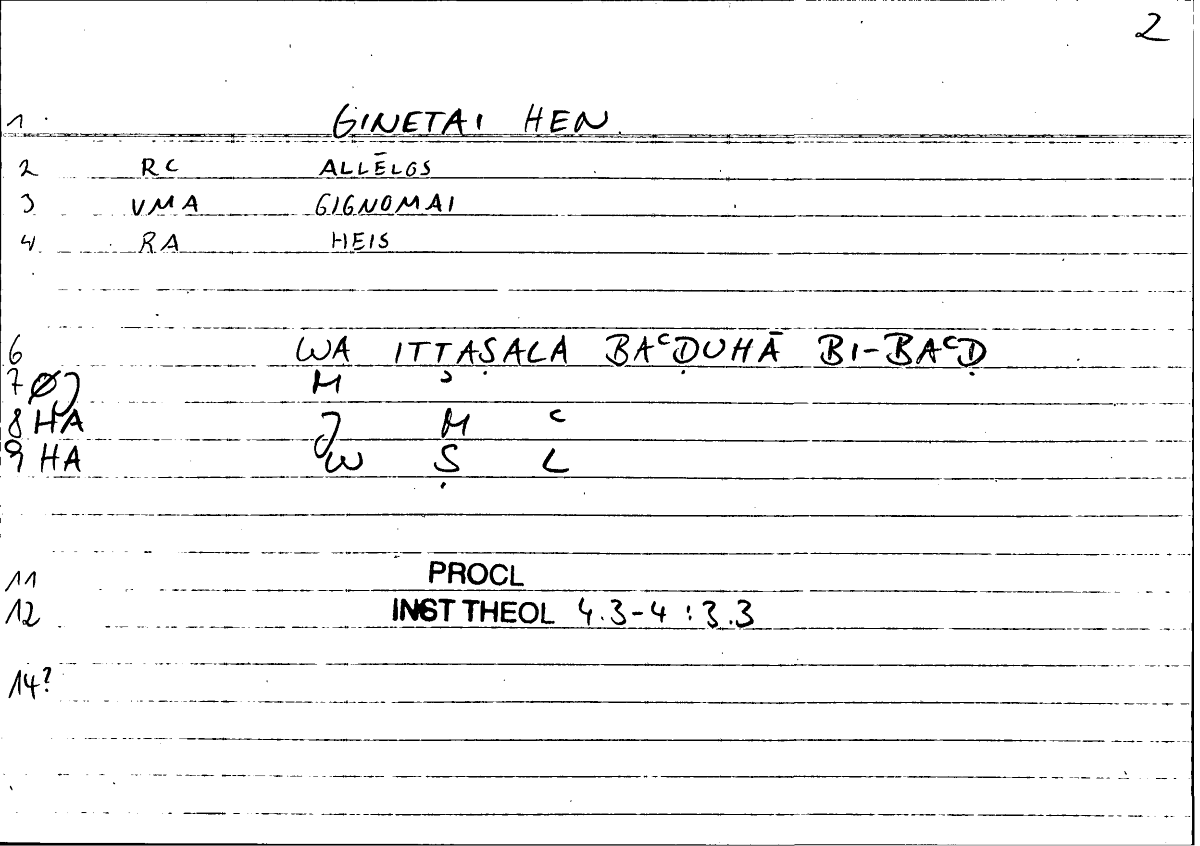 2
1 GINETAI HEN
2 RC ALLĒLOS
3 VMA GIGNOMAI
4 RA HEIS
6 WA ITTAṢALA BAᶜḌUHĀ BI-BAᶜḌ
7 M ʾ
8 HA M ᶜ
9 HA W Ṣ L
11 PROCL
12 INST THEOL 4.3-4 : 3.3
14?